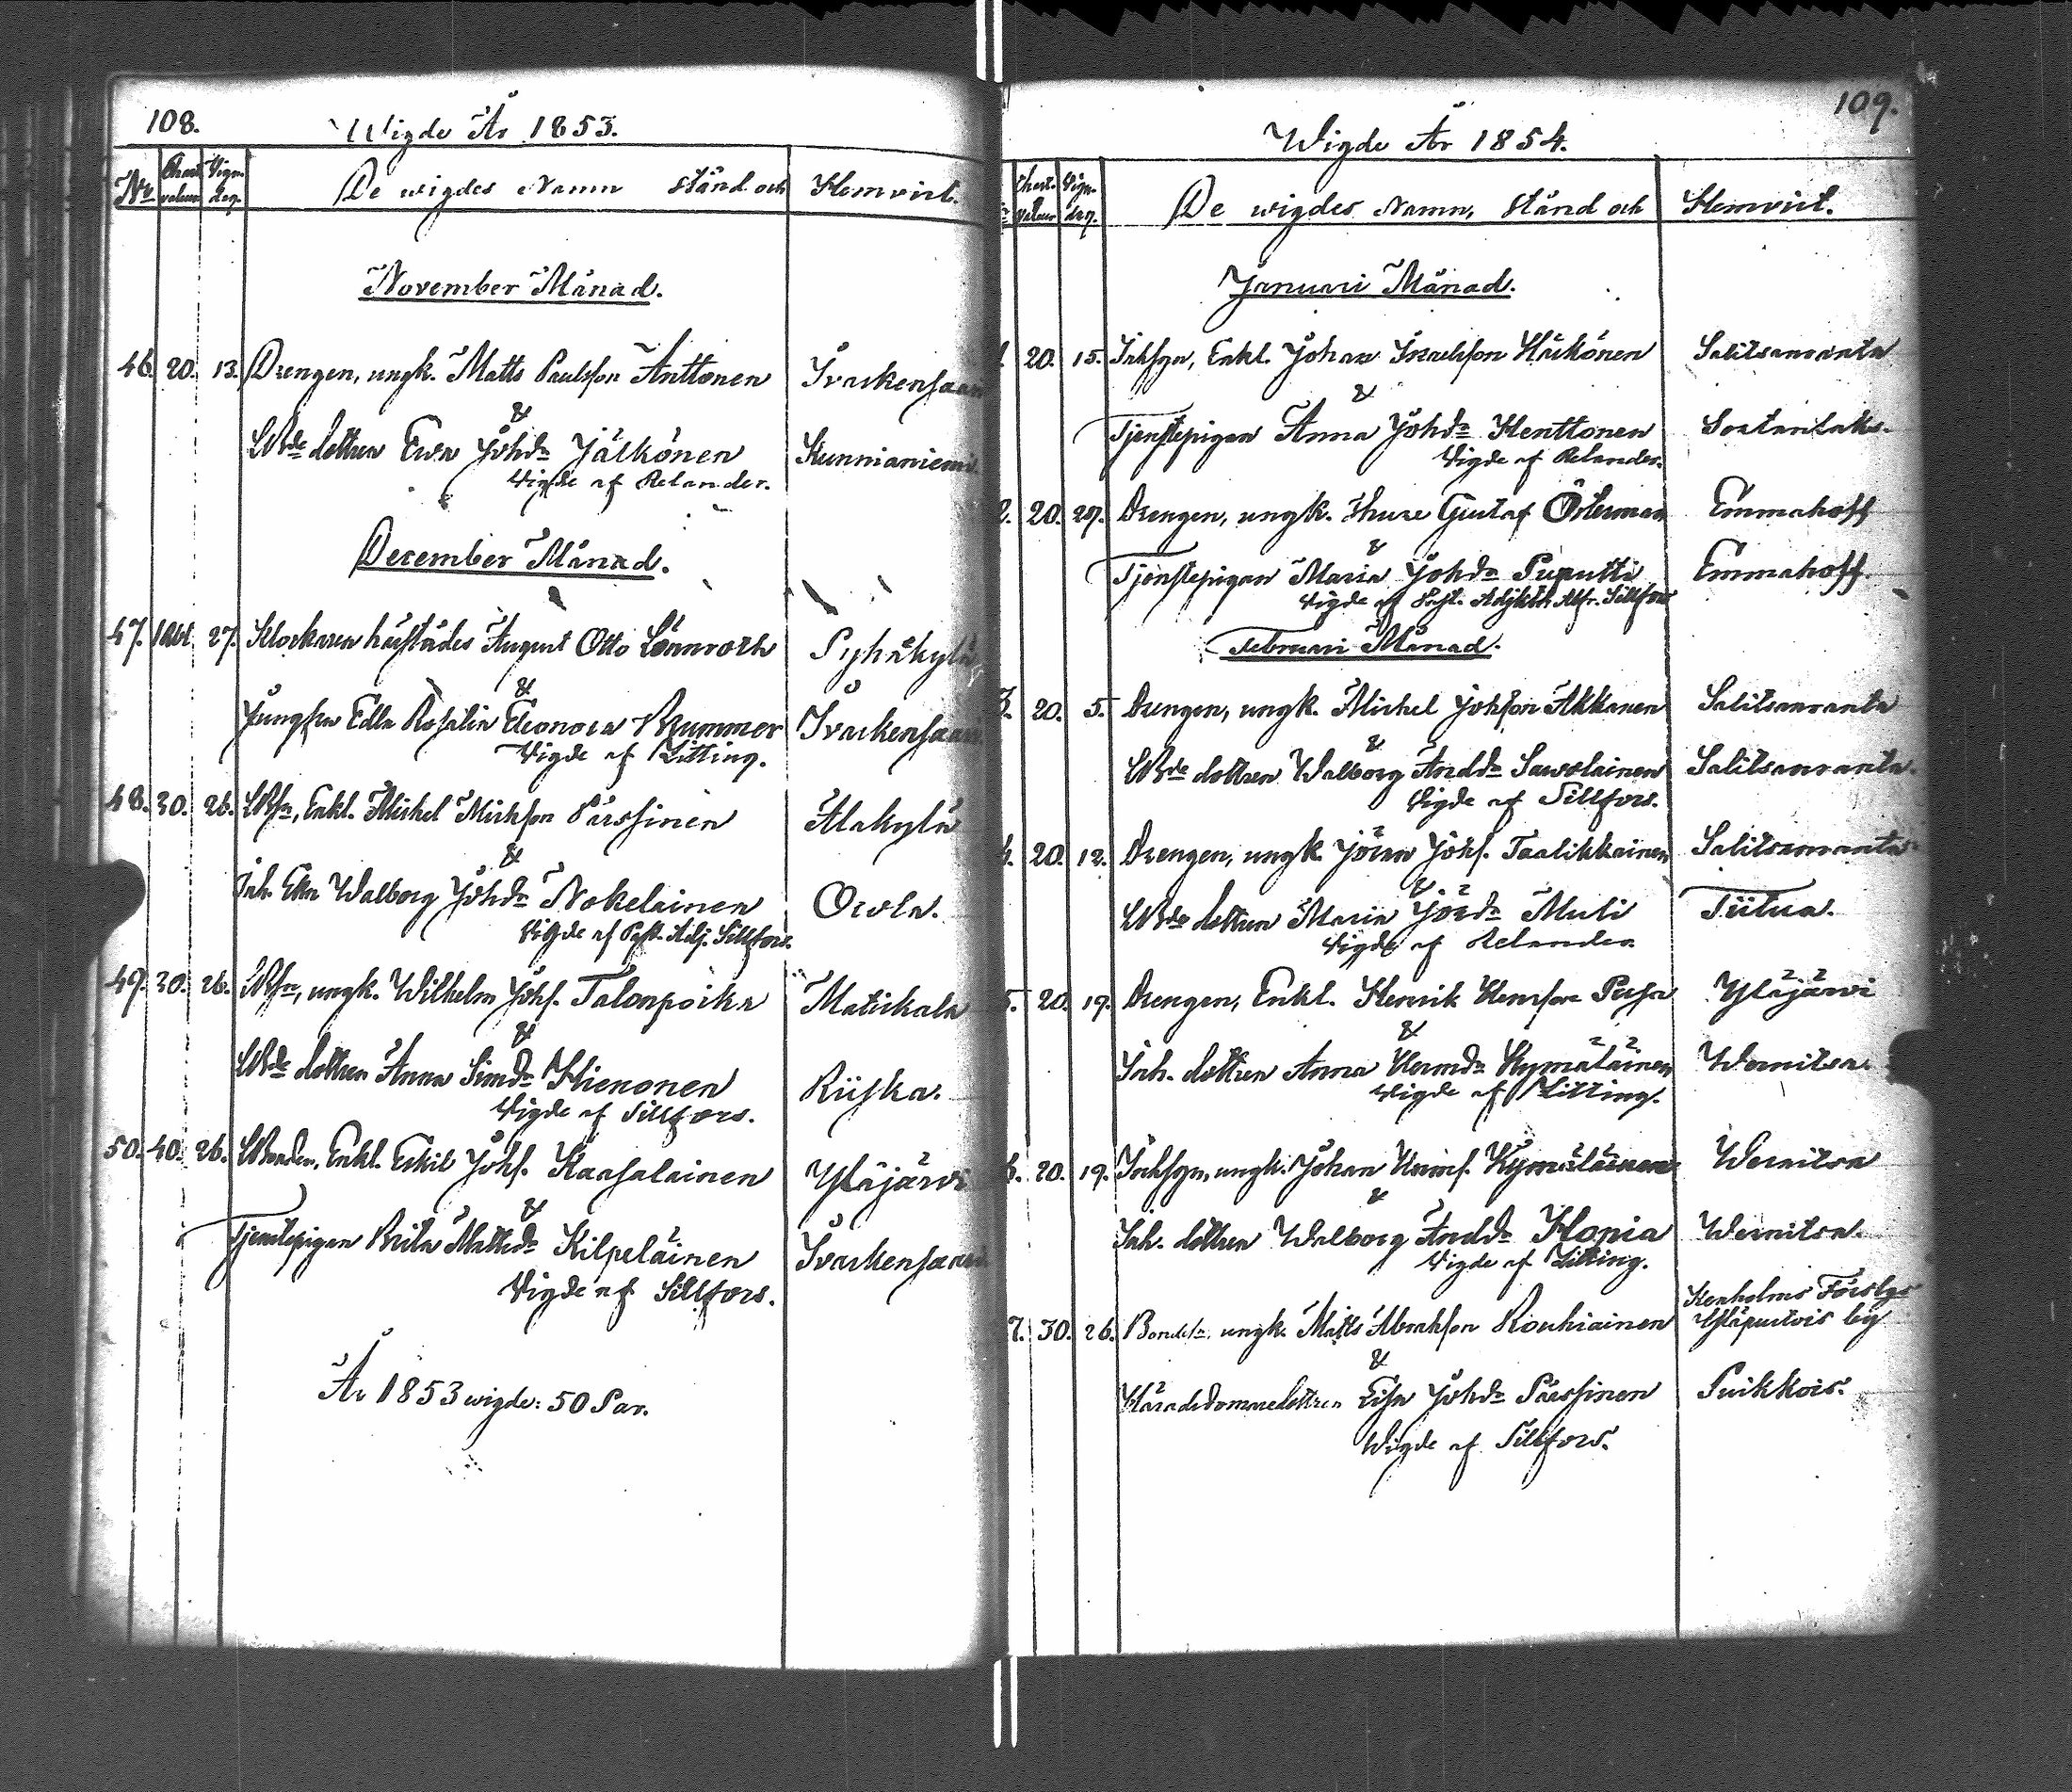 108.
Wigde År 1853.
No Chart. valuer Vign. dag. De wigdes Namn stånd och Hemvist.
November Månad.
46. 20. 13. Drengen, ungk. Matts Paulsson Anttonen
&
dottren Ewa Johdr Jälkönen Kunnianiemi
Vigde af Relander.
December Månad.
47. 27. Klockaren August Otto Lönnroth Pyhäkylä
&
Jungfru Edla Rosalia Eleonora Brummer
Vigde af Zitting.
48. 30. 26. Enkl. Michel Michson Pärssinen Alakylä
&
Inh. Enk. Walborg Johdr Nokelainen Orola.
Vigde af Past. Adj. Sillfors.
49. 30. 26. ungk. Wilhelm Johs. Talonpoika Matiskala
&
dottren Anna Simdr Hienonen Riiska.
Vigde af Sillfors.
50. 40. 26. Bonden, Enkl. Eskil Johs. Kaasalainen Yläjärvi
&
Tjenstepigan Brita Mattsdr Kilpeläinen
Vigde af Sillfors.
År 1853 wigde: 50 Par.
109.
Wigde År 1854.
Chart. valuer Vign. dag. De wigdes Namn, stånd och Hemvist.
Januari Månad.
1. 20. 15. Inhsgn, Enkl. Johan Isracksson Häikönen Salitsanranta
&
Tjenstepigan Anna Johdr Henttonen Sortanlaks.
Vigde af Relander.
2. 20. 29. Drengen, ungk. Thure Gustaf Österman Emmahoff
&
Tjenstepigan Maria Johdr Puputti Emmahoff.
Vigde af Past. Adjkt. Alfr. Sillfors
Februari Månad.
3. 20. 5. Drengen, ungk. Michel Johsson Akkanen Salitsanranta
&
dottren Walborg Anddr Sawolainen Salitsanranta.
Vigde af Sillfors.
4. 20. 12. Drengen, ungk. Jöran Johs. Taalikkainen Salitsanranta
&
dottren Maria Jördr Muli Tiitua.
Vigde af Relander
5. 20. 19. Drengen, Enkl. Henrik Henrsson Pusa Yläjärvi
&
Inh. dottren Anna Hermdr Kymäläinen Wernitsa.
Vigde af Zitting.
6. 20. 19. Inhsgn, ungk. Johan Kymäläinen Wernitsa
&
Inh. dottren Walborg Anddr Hopia Wernitsa.
Vigde af Zitting.
Kexholms Förslgs
7. 30. 26. ungk. Matts Abrahsson Rouhiainen Yläpustois by
&
Häradsdomaredottren Eisa Johdr Pärssinen Suikkois.
Wigde af Sillfors.